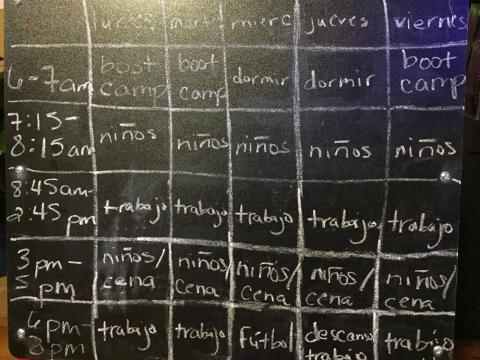 lunes mart mierc jueves viernes
6-7am boot camp boot camp dormir dormir boot camp
7:15-
8:15am niños niños niños niños niños
8:45am-
2:45 pm trabajo trabajo trabajo trabajo trabajo
3pm- niños/ niños/ niños/ niños/ niños/
5pm cena cena cena cena cena
6pm- trabajo trabajo fútbol descanso trabajo
8pm trabajo